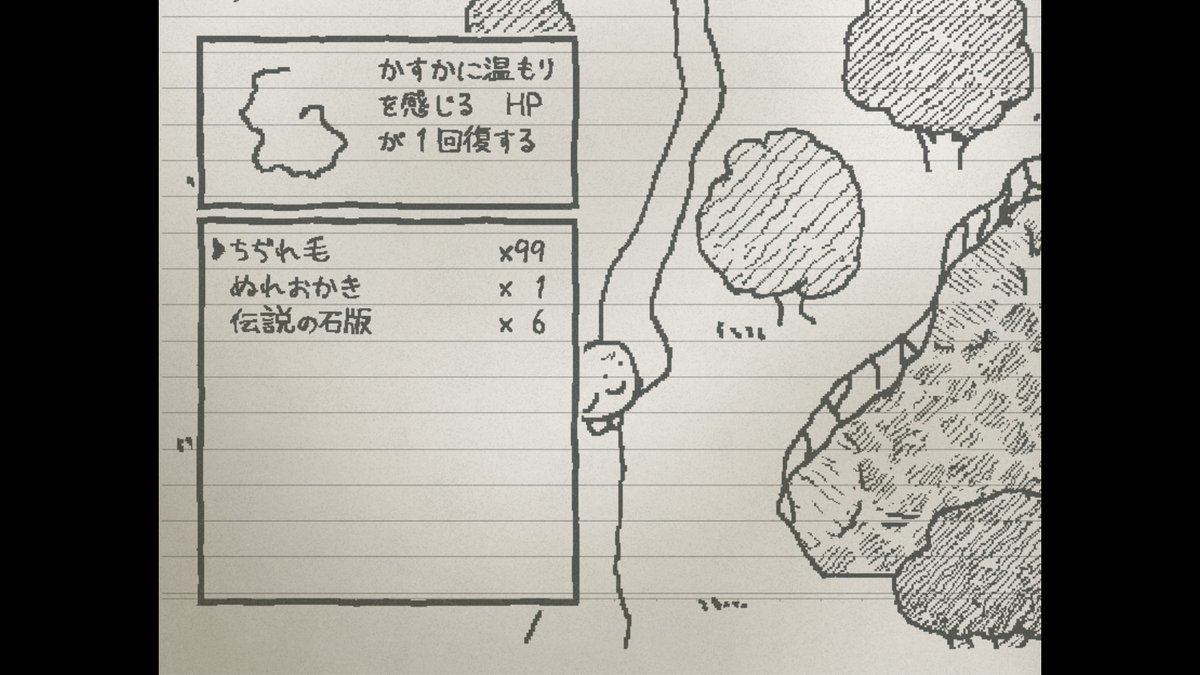 かすかに温もり
を感じる HP
が1回復する
ちぢれ毛 x99
ぬれおかき x 1
伝説の石版 x 6